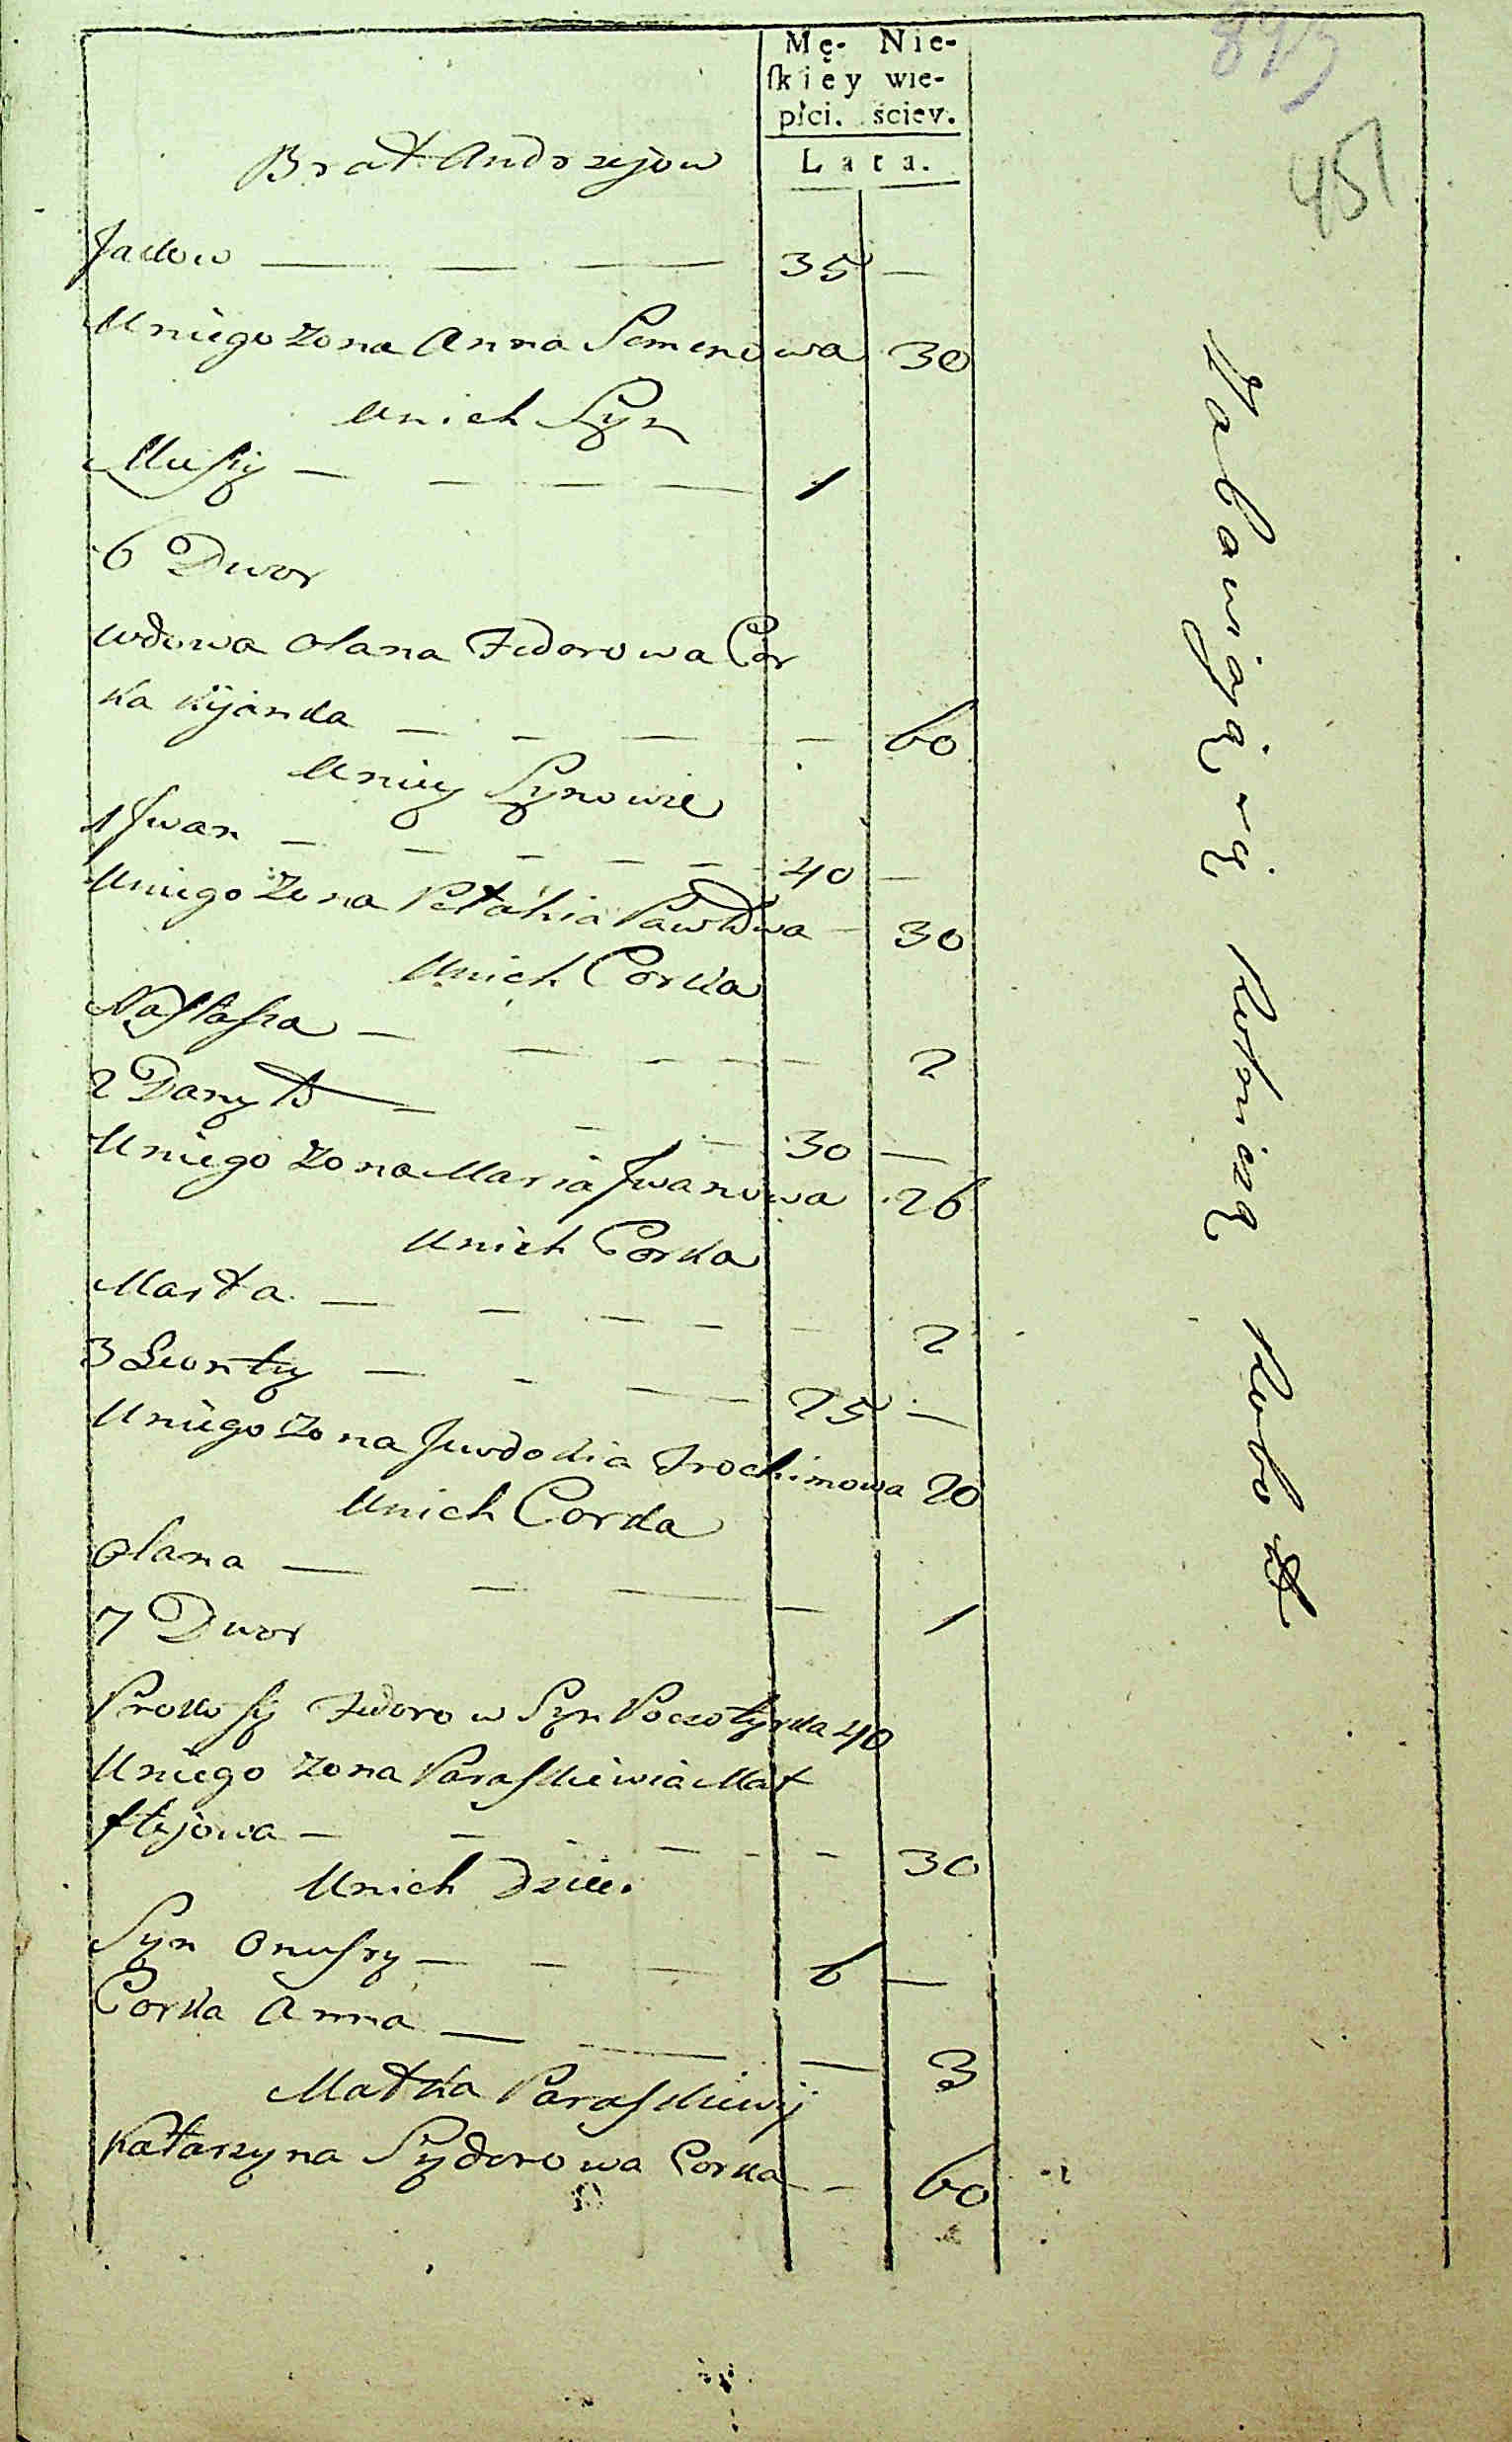 Mę- Nie-
ſkiey wie-
płci. ściey.
Lata.
451
Brat Andrzejow
Jakow — — — 35 —
Uniego żona Anna Semenowa 30
Unich Syn
Musiy — — — — 1
6 Dwor
Wdowa Olana Fedorowa Cor
ka Kijanka — — — — 60
Uniey Synowie
1 Jwan — — — — — 40 —
Uniego Żona Pełahia Pawłowa — 30
Unich Corka
Nastasia — — — — — 2
2 Danyło — — — 30 —
Uniego żona Maria Jwanowa 26
Unich Corka
Marta — — — — — 2
3 Leonty — — — — 25 —
Uniego żona Jewdokia Trochimowa 20
Unich Corka
Olana — — — — 1
7 Dwor
Prokofy Fedorow Syn Poczotyrka 40
Uniego żona Paraskiewia Mat
ftejowa — — — — — — 30
Unich Dzieci
Syn Onufry — — — 6 —
Corka Anna — — — 3
Matka Paraskiewij
Katarzyna Sydorowa Corka — — 60
Zabawiaią się Rolniczą Robotą